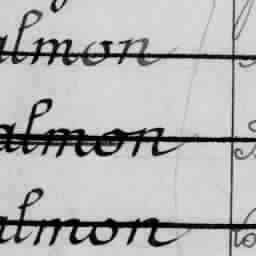 almon
almon
almon